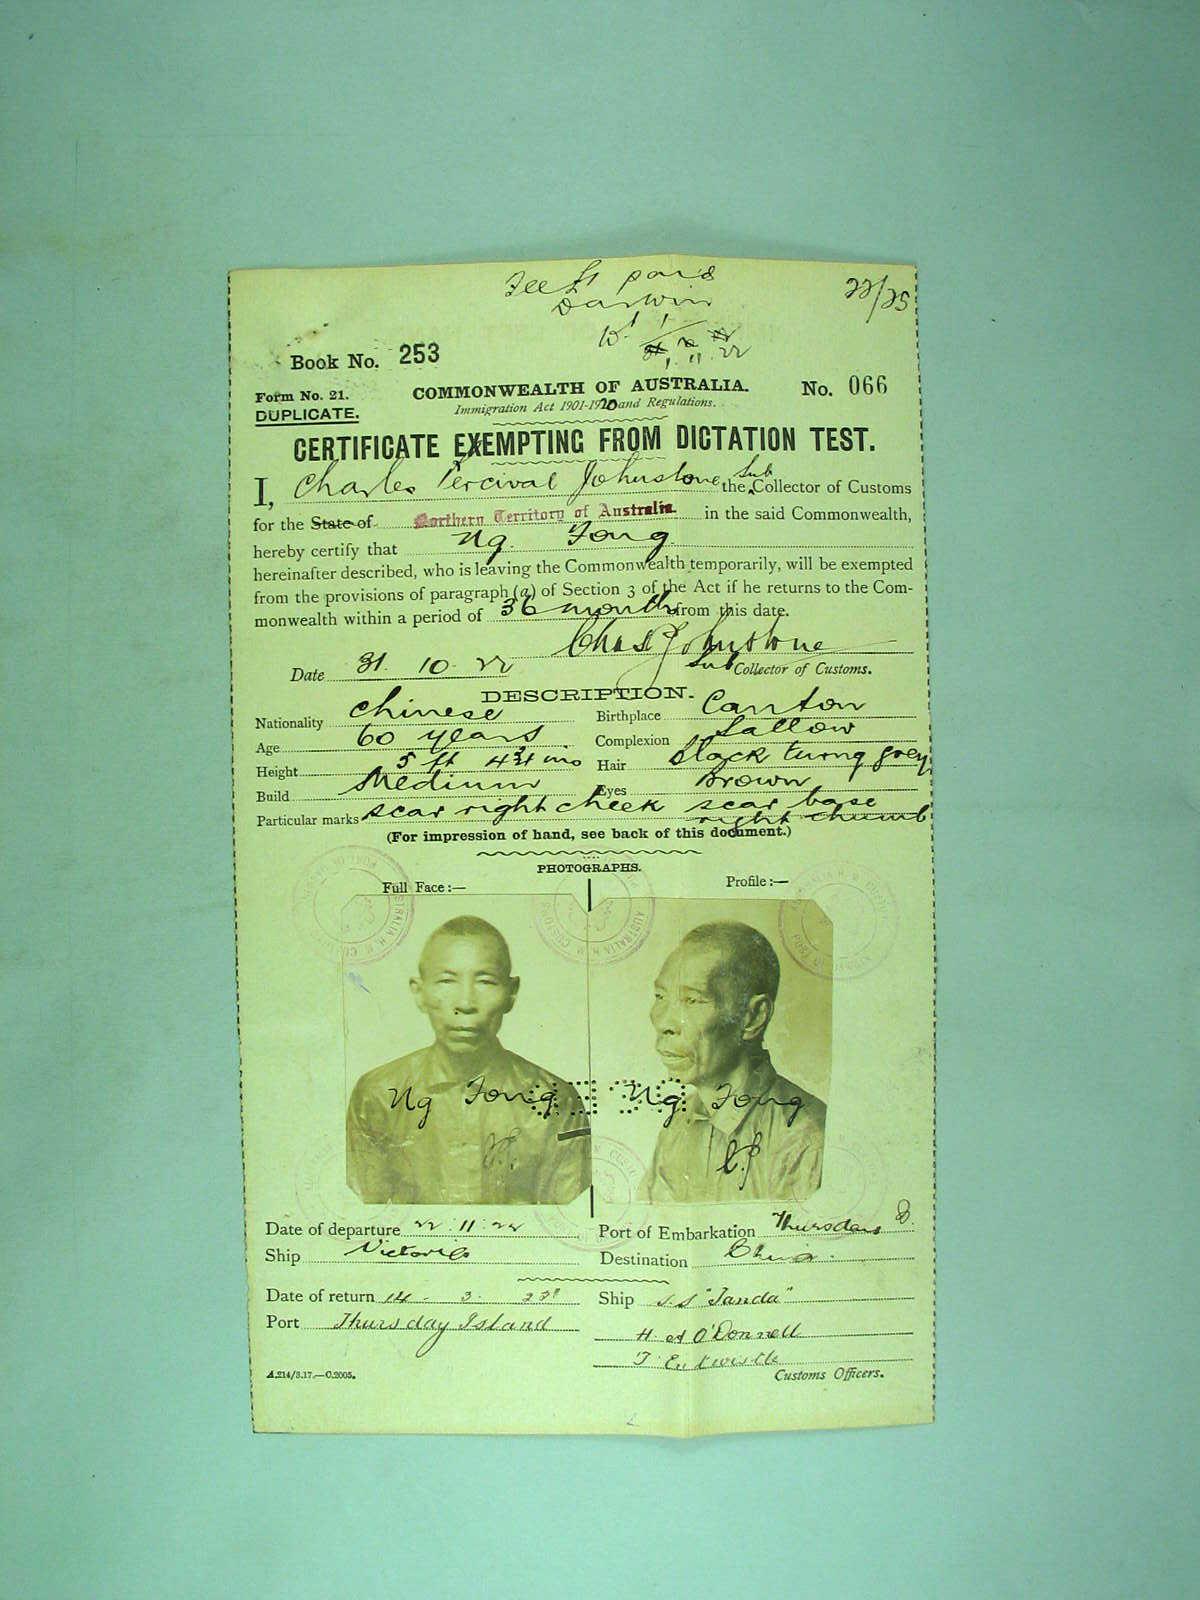 Fee £1 paid
Darwin
22/25
11. 22
Book No. 253
Form No. 21.
COMMONWEALTH OF AUSTRALIA.
No. 066
DUPLICATE.
Immigration Act 1901-1920 and Regulations.
CERTIFICATE EXEMPTING FROM DICTATION TEST.
I, Charles Percival Johnstone the Sub Collector of Customs
for the State of Northern Territory of Australia in the said Commonwealth,
hereby certify that Ng Fong
hereinafter described, who is leaving the Commonwealth temporarily, will be exempted
from the provisions of paragraph (a) of Section 3 of the Act if he returns to the Com-
monwealth within a period of 36 months from this date.
Chas P Johnstone
Date 31. 10. 22 Sub Collector of Customs.
DESCRIPTION.
Nationality Chinese Birthplace Canton
Age 60 years Complexion Sallow
Height 5 ft 4 3/4 ins Hair black turng grey
Build Medium Eyes Brown
Particular marks scar right cheek scar base
right thumb
(For impression of hand, see back of this document.)
PHOTOGRAPHS.
Full Face:— Profile:—
Ng Fong Ng Fong
Date of departure 22.11.22 Port of Embarkation Thursday I.
Ship Victoria Destination China.
Date of return 14 - 3. 23 Ship S.S "Tanda"
Port Thursday Island H. A O'Donnell
T. Entwistle
A.214/3.17.—C.2005. Customs Officers.